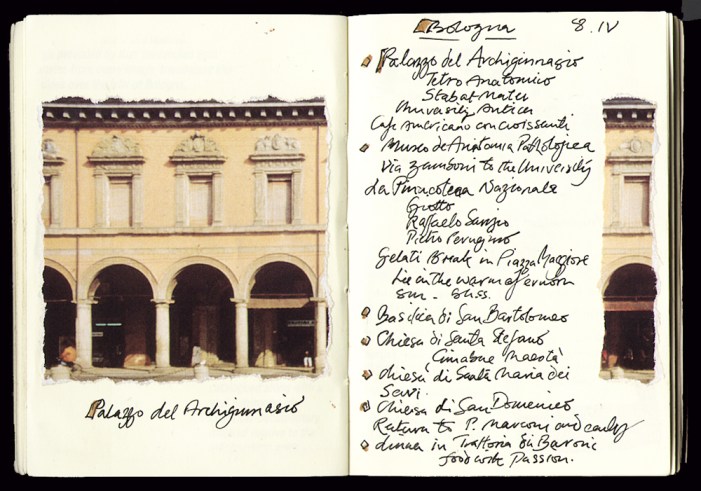 Palazzo del Archiginnasio
Bologna 8. IV
Palazzo del Archiginnasio
Tetro Anatomico
Stabat Mater
University Antica
Cafe Americano con croissanti
Museo de Anatomia Pathologica
Via Zamboni to the University
La Pinacoteca Nazionale
Giotto
Raffaelo Sanzio
Pietro Perugino
Gelati Break in Piazza Maggiore
Lie in the warm afternoon
sun - Bliss.
Basilica di San Bartolomeo
Chiesa di Santa Stefano
Cimabue Maestà
Chiesa di Santa Maria dei
Servi
Chiesa di San Domenico
Return to P. Marconi and early
dinner in Trattoria da Baroni
food with Passion.